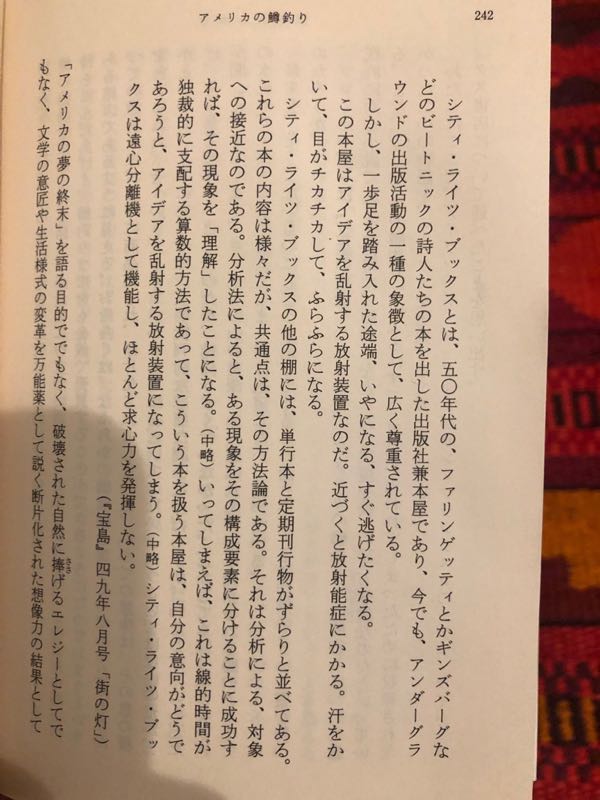 アメリカの鱒釣り
242
シティ・ライツ・ブックスとは、五〇年代の、ファリンゲッティとかギンズバーグな
どのビートニックの詩人たちの本を出した出版社兼本屋であり、今でも、アンダーグラ
ウンドの出版活動の一種の象徴として、広く尊重されている。
しかし、一歩足を踏み入れた途端、いやになる、すぐ逃げたくなる。
この本屋はアイデアを乱射する放射装置なのだ。近づくと放射能症にかかる。汗をか
いて、目がチカチカして、ふらふらになる。
シティ・ライツ・ブックスの他の棚には、単行本と定期刊行物がずらりと並べてある。
これらの本の内容は様々だが、共通点は、その方法論である。それは分析による、対象
への接近なのである。分析法によると、ある現象をその構成要素に分けることに成功す
れば、その現象を「理解」したことになる。（中略）いってしまえば、これは線的時間が
独裁的に支配する算数的方法であって、こういう本を扱う本屋は、自分の意向がどうで
あろうと、アイデアを乱射する放射装置になってしまう。（中略）シティ・ライツ・ブッ
クスは遠心分離機として機能し、ほとんど求心力を発揮しない。
（『宝島』四九年八月号「街の灯」）
「アメリカの夢の終末」を語る目的ででもなく、破壊された自然に捧げるエレジーとしてで
もなく、文学の意匠や生活様式の変革を万能薬として説く断片化された想像力の結果として